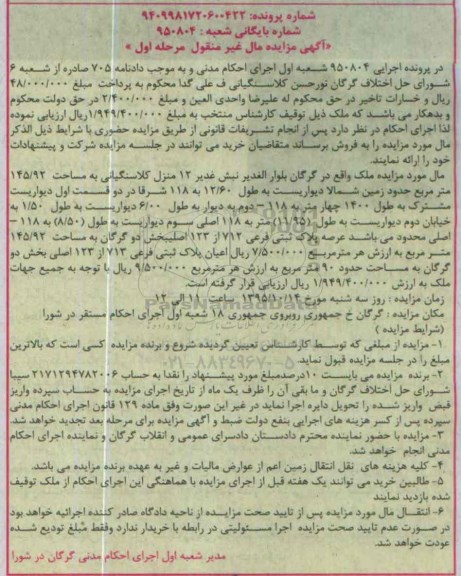 شماره پرونده: ۹۴۰۹۹۸۱۷۲۰۶۰۰۴۲۲
شماره بایگانی شعبه : ۹۵۰۸۰۴
«آگهی مزایده مال غیر منقول مرحله اول »
در پرونده اجرایی ۹۵۰۸۰۴ شعبه اول اجرای احکام مدنی و به موجب دادنامه ۷۰۵ صادره از شعبه ۶
شورای حل اختلاف گرگان نورحسن کلاسنگیانی ف علی گدا محکوم به پرداخت مبلغ ۴۸/۰۰۰/۰۰۰
ریال و خسارات تاخیر در حق محکوم له علیرضا واحدی العین و مبلغ ۲/۴۰۰/۰۰۰ در حق دولت محکوم
و بدهکار می باشد که ملک ذیل توقیف کارشناس منتخب به مبلغ ۱/۹۴۹/۴۰۰/۰۰۰ریال ارزیابی نموده
لذا اجرای احکام در نظر دارد پس از انجام تشریفات قانونی از طریق مزایده حضوری با شرایط ذیل الذکر
مال مورد مزایده را به فروش برساند متقاضیان خرید می توانند در جلسه مزایده شرکت و پیشنهادات
خود را ارائه نمایند.
مال مورد مزایده ملک واقع در گرگان بلوار الغدیر نبش غدیر ۱۲ منزل کلاسنگیانی به مساحت ۱۴۵/۹۲
متر مربع حدود زمین شمالا دیواریست به طول ۱۲/۶۰ به ۱۱۸ شرقا در دو قسمت اول دیواریست
مشترک به طول ۱۴۰۰ چهار متر به ۱۱۸ – دوم به دیوار به طول ۶/۰۰ دیواریست به طول ۱/۵۰ به
خیابان دوم دیواریست به طول (۱۱/۹۵) متر به ۱۱۸ اصلی سوم دیواریست به طول (۸/۵۰) به ۱۱۸ –
اصلی محدود می باشد عرصه پلاک ثبتی فرعی ۷۱۲ از ۱۲۳ اصلیبخش دو گرگان به مساحت ۱۴۵/۹۲
متر مربع به ارزش هر مترمربع ۷/۵۰۰/۰۰۰ ریال اعیان پلاک ثبتی فرعی ۷۱۳ از ۱۲۳ اصلی بخش دو
گرگان به مساحت حدود ۹۰ متر مربع به ارزش هر مترمربع ۹/۵۰۰/۰۰۰ ریال با توجه به جمیع جهات
ملک به ارزش ۱/۹۴۹/۴۰۰/۰۰۰ ریال ارزیابی قرار گرفته است.
زمان مزایده : روز سه شنبه مورخ ۱۳۹۵/۱۰/۱۴ ساعت ۱۱ الی ۱۲
مکان مزایده : گرگان خ جمهوری روبروی جمهوری ۱۸ شعبه اول اجرای احکام مستقر در شورا
(شرایط مزایده )
۱- مزایده از مبلغی که توسط کارشناس تعیین گردیده شروع و برنده مزایده کسی است که بالاترین
مبلغ را در جلسه مزایده قبول نماید.
۲- برنده مزایده می بایست ۱۰درصدمبلغ مورد پیشنهاد را نقدا به حساب ۲۱۷۱۲۹۴۷۸۲۰۰۶ سیبا
شورای حل اختلاف گرگان و ما بقی آن را ظرف یک ماه از تاریخ اجرای مزایده به حساب سپرده واریز
قبض واریز شده را تحویل دایره اجرا نماید در غیر این صورت وفق ماده ۱۲۹ قانون اجرای احکام مدنی
سپرده پس از کسر هزینه های اجرایی بنفع دولت ضبط و آگهی مزایده برای مرحله بعد تجدید خواهد شد.
۳- مزایده با حضور نماینده محترم دادستان دادسرای عمومی و انقلاب گرگان و نماینده اجرای احکام
مدنی انجام خواهد شد.
۴- کلیه هزینه های نقل انتقال زمین اعم از عوارض مالیات و غیر به عهده برنده مزایده می باشد.
۵- طالبین خرید می توانند یک هفته قبل از اجرای مزایده با هماهنگی این اجرای احکام از ملک توقیف
شده بازدید نمایند
۶- انتقال مال مورد مزایده پس از تایید صحت مزایده از ناحیه دادگاه صادر کننده اجرائیه خواهد بود
در صورت عدم تایید صحت مزایده اجرا مسئولیتی در رابطه با خریدار ندارد وفقط مبلغ تودیع شده
عودت خواهد شد.
مدیر شعبه اول اجرای احکام مدنی گرگان در شورا